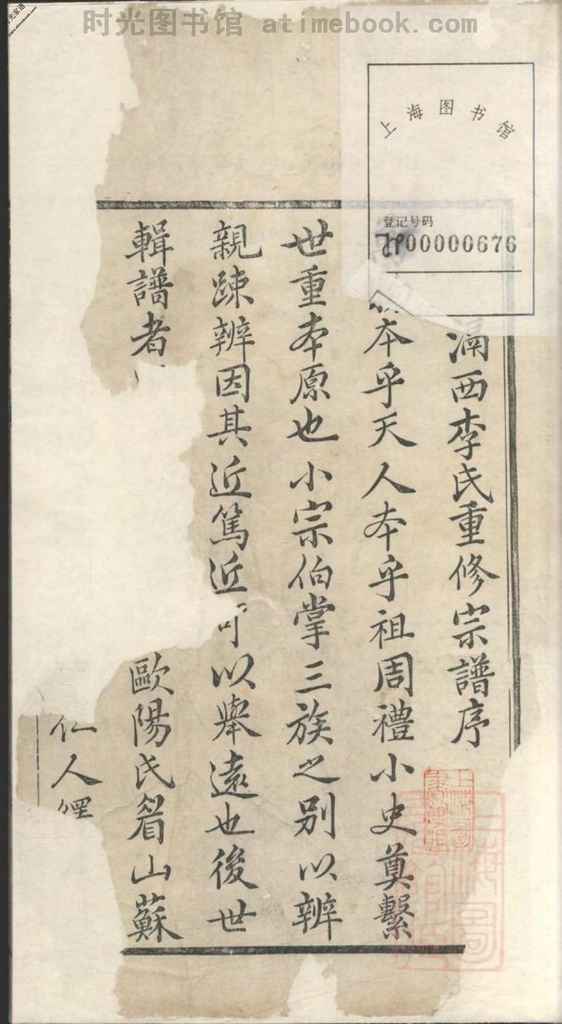 时光图书馆 atimebook.com
上海图书馆
登记号码
00000676
西李氏重修宗譜序
本乎天人本乎祖周禮小史奠繫
世重本原也小宗伯掌三族之别以辨
親疎辨因其近篤近可以舉遠也後世
輯譜者
歐陽氏眉山蘇
仁人